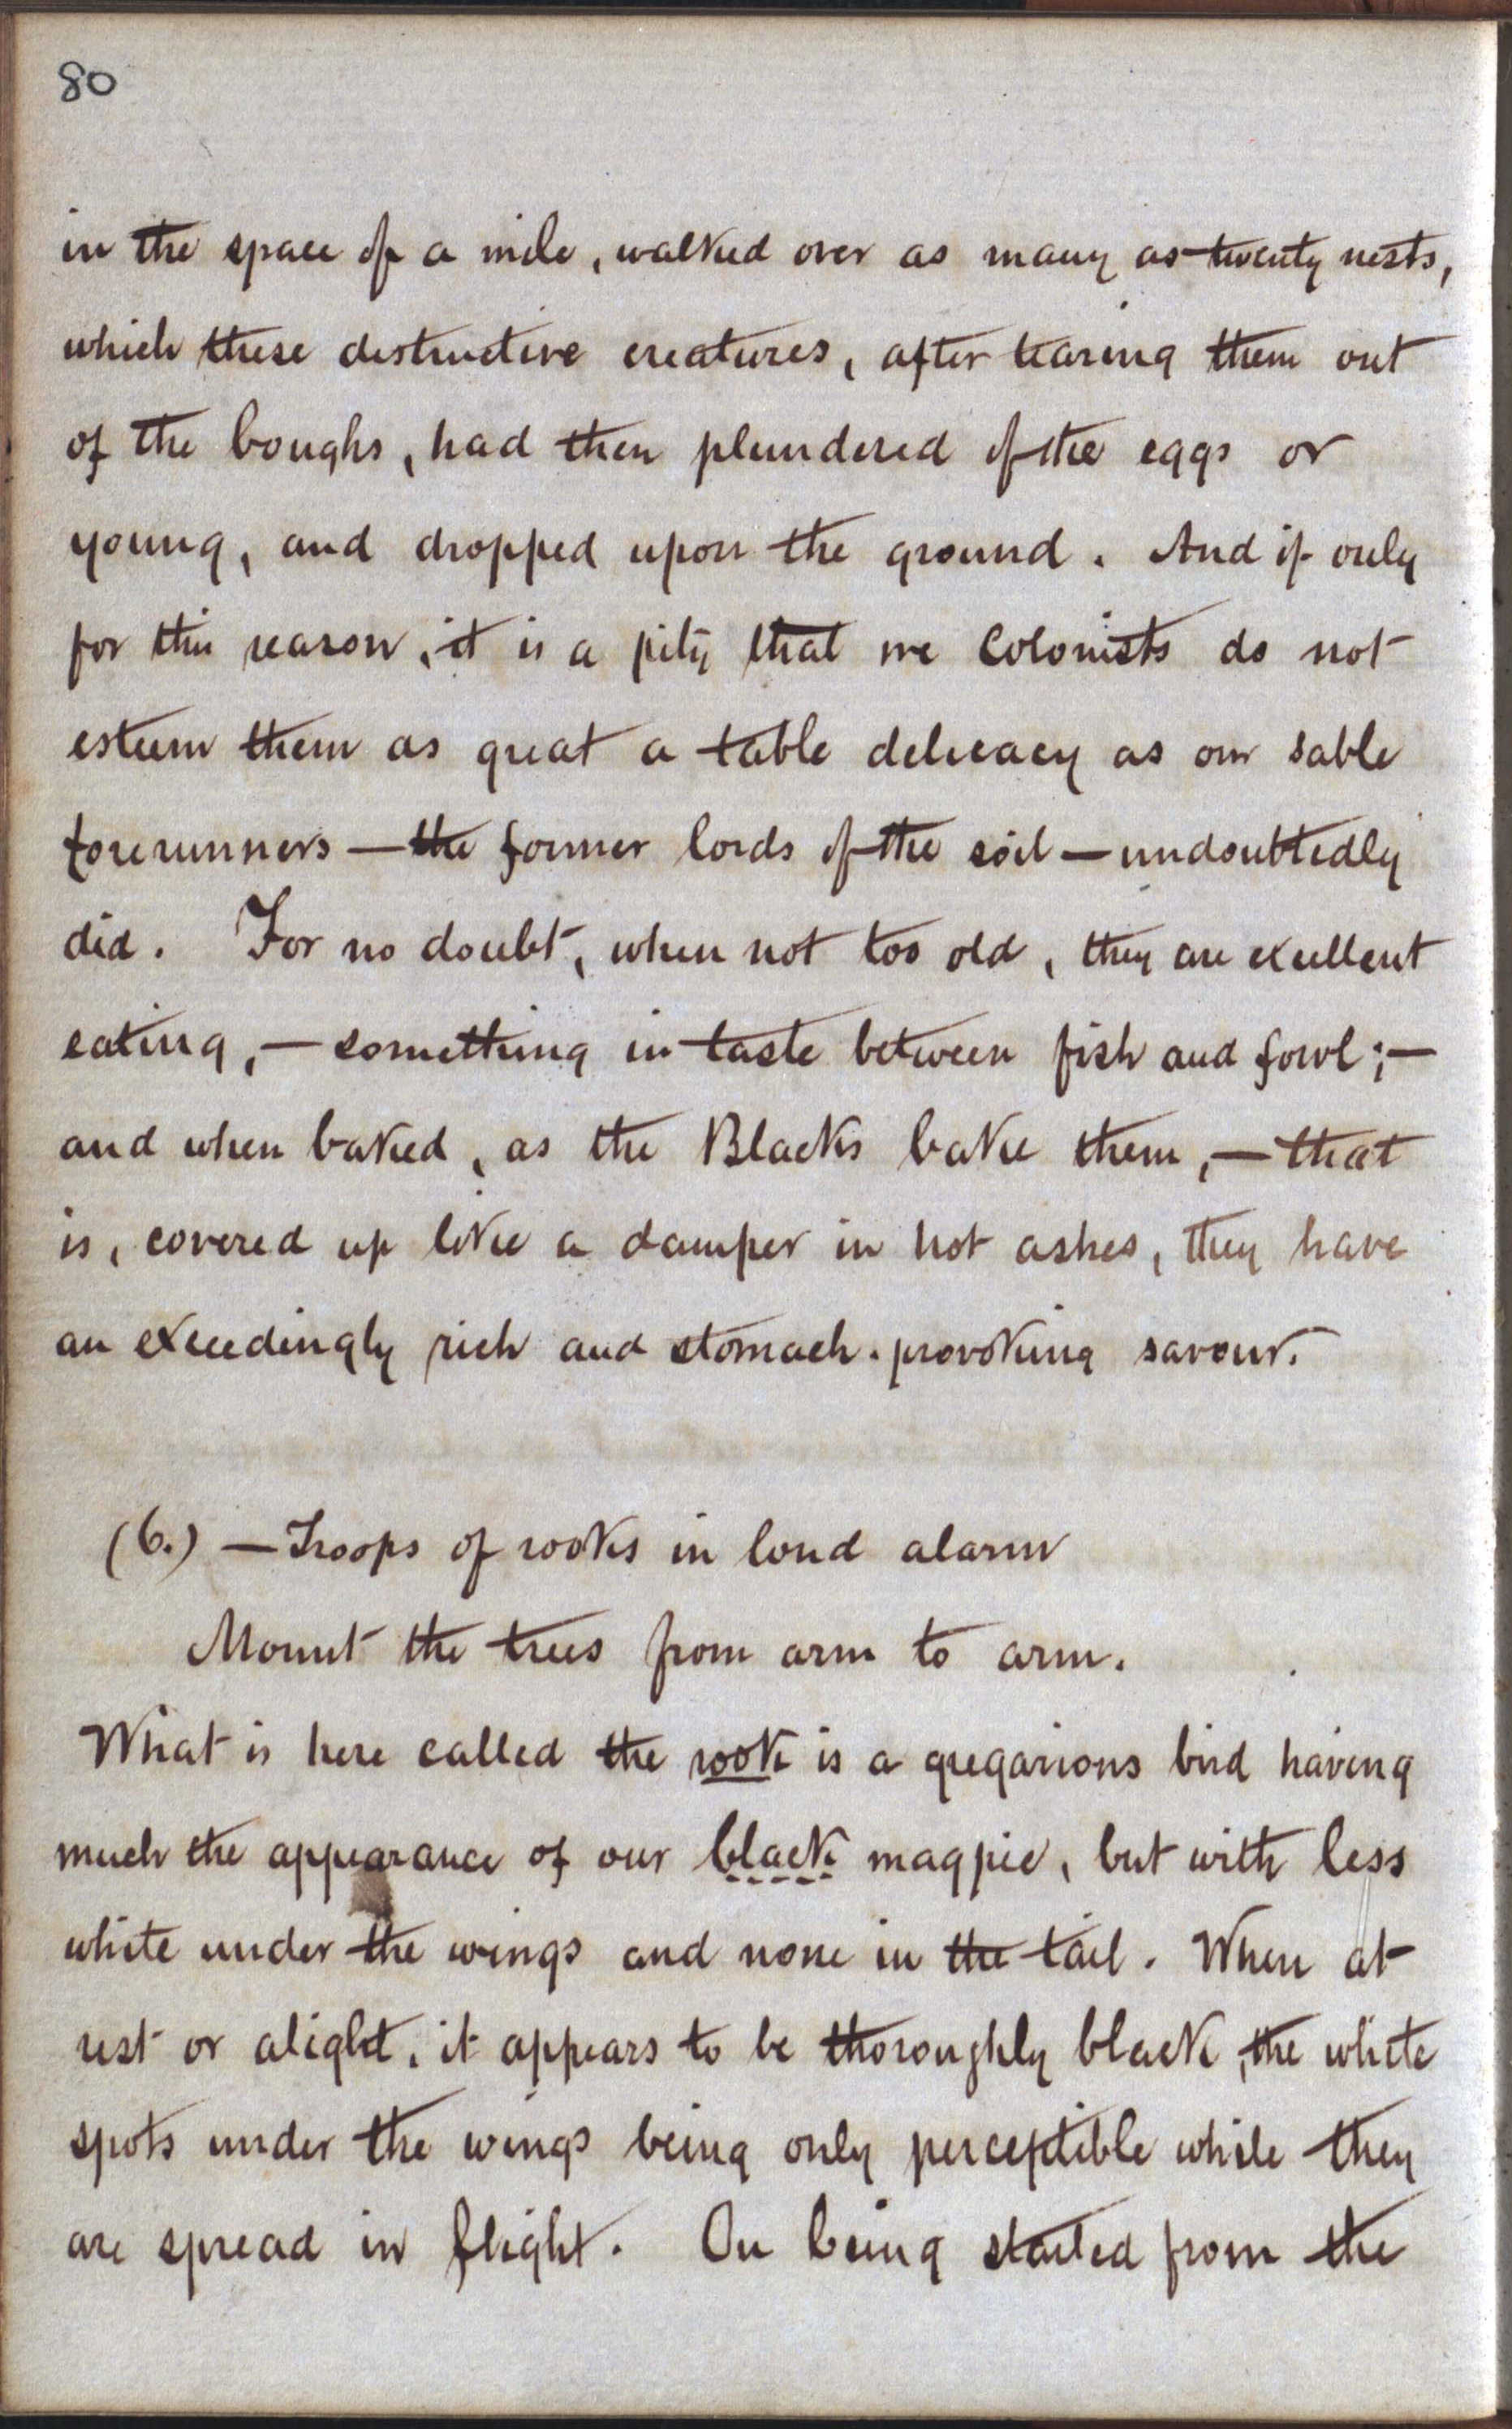 80
in the space of a mile, walked over as many as twenty nests,
which these destructive creatures, after tearing them out
of the boughs, had then plundered of the eggs or
young, and dropped upon the ground. And if only
for this reason, it is a pity that we Colonists do not
esteem them as great a table delicacy as our sable
forerunners — the former lords of the soil — undoubtedly
did. For no doubt, when not too old, they are excellent
eating, — something in taste between fish and fowl; —
and when baked, as the Blacks bake them, — that
is, covered up like a damper in hot ashes, they have
an exceedingly rich and stomach-provoking savour.
(6.) — Troops of rooks in loud alarm
Mount the trees from arm to arm.
What is here called the rook is a gregarious bird having
much the appearance of our black magpie, but with less
white under the wings and none in the tail. When at
rest or alight, it appears to be thoroughly black, the white
spots under the wings being only perceptible while they
are spread in flight. On being started from the